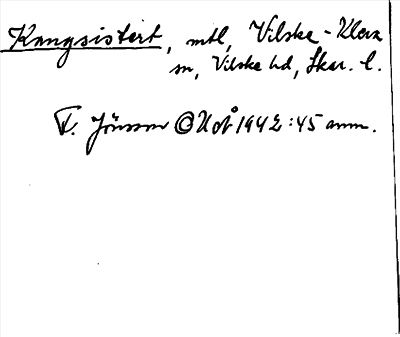 Kungsistert, mtl, Vilske-Kleva
sn, Vilske hd, Skar. l.
F. Jönsson ONoÅ 1942:45 anm.